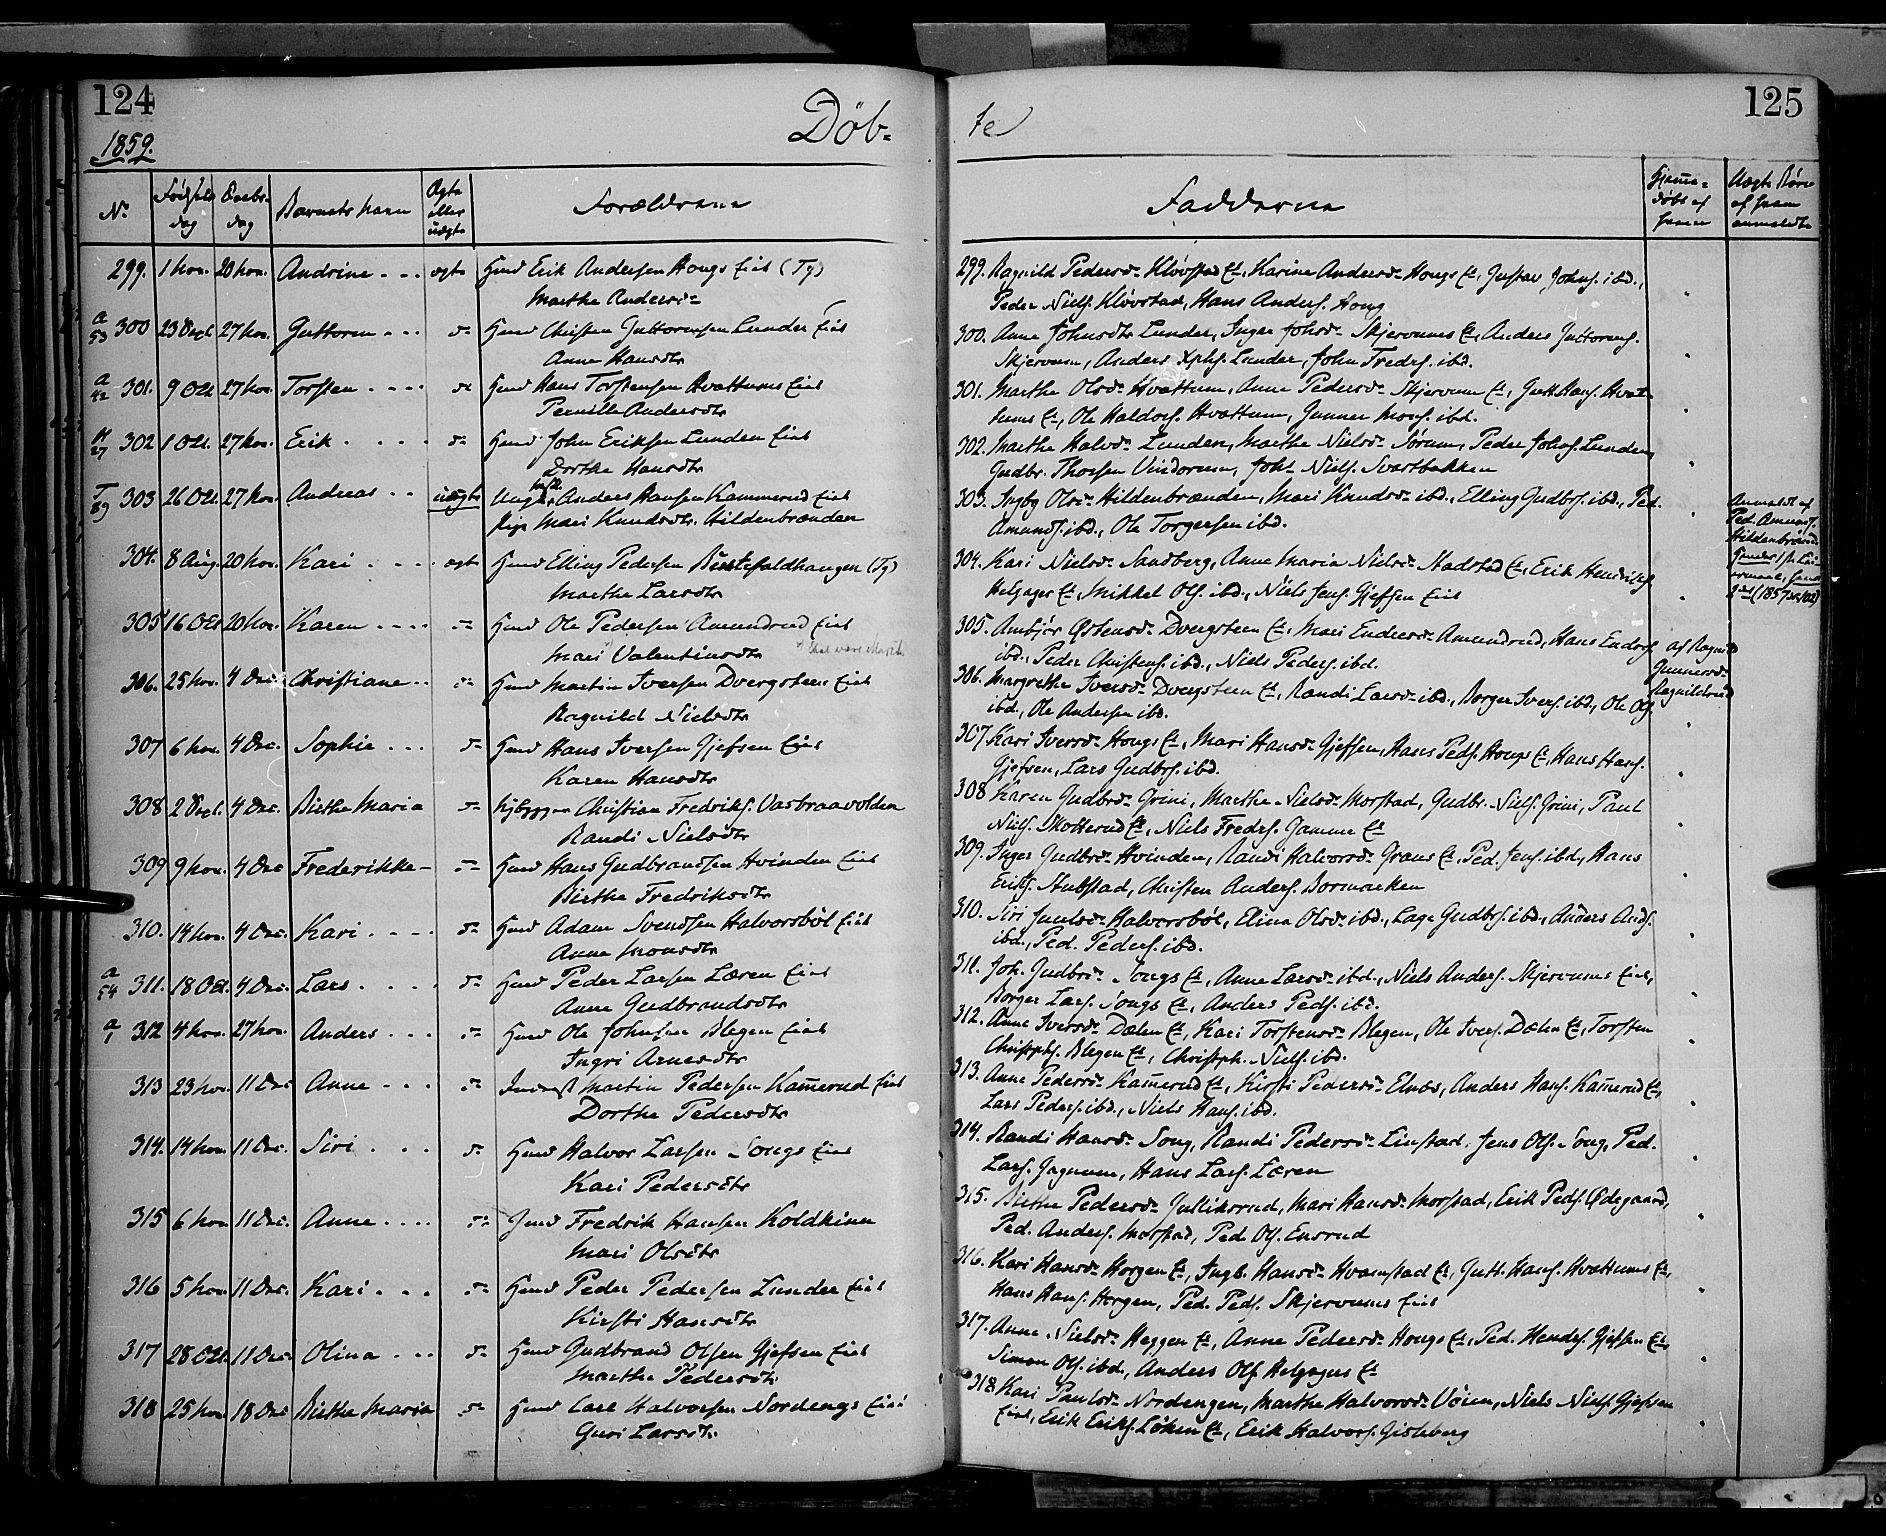 124
1859.
Døb-
No Fødsels dag Daabs dag Barnets navn Ægte eller uægte Forældrene
299. 1 Nov. 20 Nov. Andrine ægte Gmd Erik Andersen Hougs Eie (Tg)
Marthe Andersd
a 53 300 23 Oct. 27 Nov. Guttorm Gmd Christen Guttormsen Lunder Eie
Anne Hansdtr
a 42 301. 9 Oct. 27 Nov. Torsten Gmd Hans Torstensen Hvattums Eie
Pernille Andersdtr
27 302 1 Oct. 27 Nov. Erik Gmd John Eriksen Lunden Eie
Dorthe Hansdtr
T 89 303 26 Oct. 27 Nov. Andreas uægte Ungk. Anders Hansen Kammerud Eie
Pige Mari Knudsdtr. Hildenbrænden
304. 8 Aug. 20 Nov. Kari ægte Gmd Elling Pedersen (Tg)
Marthe Larsdtr
305 16 Oct 20 Nov. Karen Gmd Ole Pedersen Amundrud Eie
Mari Valentinsdtr
306. 25 Nov. 4 Dec. Christiane Gmd Martin Iversen Dvergsteen Eie
Ragnild Nielsdtr
307 6 Nov. 4 Dec. Sophie Gmd Hans Iversen Gjefsen Eie
Karen Hansdtr
308 2 Oct. 4 Dec. Birthe Maria Nybygger Christian Fredriks. Vasbraavolden
Randi Nielsdtr
309 9 Nov. 4 Dec Frederikke Gmd Hans Gudbrandsen Hvinden Eie
Birthe Fredriksdtr
310. 14 Nov. 4 Dec. Kari Gmd Adam Svendsen Halvorsböl Eie
Anne Monsdtr
a 54 311. 18 Oct. 4 Dec. Lars Gmd Peder Larsen Læren Eie
Anne Gudbrandsdtr
a 1 312 4 Nov. 27 Nov. Anders Gmd Ole Johnsen Blegen Eie
Ingri Arnesdtr
313 23 Nov. 11 Dec Anne Martin Pedersen Kam̄erud Eie
Dorthe Pedersdtr
314. 14 Nov. 11 Dec. Siri Gmd Halvor Larsen Songs Eie
Kari Pedersdtr
315 6 Nov. 11 Dec. Anne Gmd Fredrik Hansen Koldkinn
Mari Olsdtr
316 5 Nov. 11 Dec. Kari Gmd Peder Pedersen Lunder Eie
Kirsti Hansdtr
317 28 Oct. 11 Dec. Olina Gmd Gudbrand Olsen Gjefsen Eie
Marthe Pedersdtr.
318 25 Nov 18 Dec Birthe Maria Gmd Carl Halvorsen Nordengs Eie
Guri Larsdtr.
te
125
Fadderne Hjem̄edøbt af hvem Uægte Børn af hvem anmeldte
299. Ragnild Pedersd. Kløvstad E., Karine Andersd. Hougs E., Gustav Johns. ibd.,
Peder Niels. Kløvstad, Hans Anders. Houg
300. Anne Johnsdtr Lunder, Inger Johsd. Skjervums E., Anders Guttorms.
Skjervum, Anders Xphs. Lunder, John Fredrs. ibd.
301. Marthe Olsd. Hvattum, Anne Pedersd. Skjervum E., Gutt. Hans. Hvattums E., Ole Haldors. Hvattum, Gunner Mons. ibd.
302. Marthe Halvd. Lunden, Marthe Nielsd. Sørum, Peder Johns. Lunden
Gudbr. Thorsen Vindorum, Joh. Niels. Svartbakken
303. Ingbg Olsd. Hildenbrænden, Mari Knudsd. ibd., Elling Gudbrs. ibd., Ped.
Amunds. ibd., Ole Torgersen ibd.
Anmeldt af
Ped. Amunds.
Hildenbrænd.
304. Kari Nielsd. Sandberg, Anne Maria Nielsd. Stadstad E., Erik Henriks.
Helgager E., Mikkel Ols. ibd., Niels Jens. Gjefsen Eie
305. Ambjör Østensd. Dvergsteen E., Mari Endresd. Amundrud, Hans Endrs.
ibd., Peder Christens. ibd., Niels Peders. ibd.
af Ragnild
Gunnersd.
Ragnildrud
306. Margrethe Iversd. Dvergsteen E., Randi Larsd. ibd., Borger Ivers. ibd., Ole Ols.
ibd., Ole Andersen ibd.
307 Kari Iversd. Hougs E., Mari Hansd. Gjefsen, Hans Peds. Hougs E., Hans Hans.
Gjefsen, Lars Gudbrs. ibd.
308 Karen Gudbrd. Grini, Marthe Nielsd. Morstad, Gudbr. Niels. Grini, Paul
Niels. Skotterud E., Niels Fredrs. Gamme E.
309. Inger Gudbrd. Hvinden, Randi Halvorsd. Grans E., Ped. Jens. ibd., Hans
Eriks. Stubstad, Christen Anders. Bormarken
310. Siri Juulsd. Halvorsböl, Elina Olsd. ibd., Lage Gudbrs. ibd., Anders Ands.
ibd., Ped. Peders. ibd.
311. Joh. Gudbrd. Songs E., Anne Larsd. ibd., Niels Anders. Skjervums Eie,
Borger Lars. Songs E., Anders Peds. ibd.
312. Anne Iversd. Dælen E., Kari Torstensd. Blegen, Ole Ivers. Dælen E., Torsten
Christphs. Blegen E., Christph. Niels. ibd.
313. Anne Pedersd. Kam̄erud E., Kirsti Pedersd. Elnæs, Anders Hans. Kam̄erud E.,
Lars Peders. ibd., Niels Hans. ibd.
314. Randi Hansd. Song, Randi Pedersd. Linstad, Jens Ols. Song, Ped.
Lars. Gagnum, Hans Lars. Læren
315. Birthe Pedersd. Julliksrud, Mari Hansd. Morstad, Erik Peds. Ødegaard,
Ped. Anders. Morstad, Ped. Ols. Ensrud
316. Kari Hansd. Horgen E., Ingb. Hansd. Hvamstad E., Gutt. Hans. Hvattums E.,
Hans Hans. Horgen, Ped. Peds. Skjervums Eie
317. Anne Nielsd. Heggen E., Anne Pedersd. Hougs E., Ped. Hendrs. Gjefsen E.,
Simon Ols. ibd., Anders Ols. Helgagers E.
318 Kari Paulsd. Nordengen, Marthe Halvorsd. Vøien, Niels Niels. Gjefsen
Eie, Erik Eriks. Løken E., Erik Halvors. Gisleberg